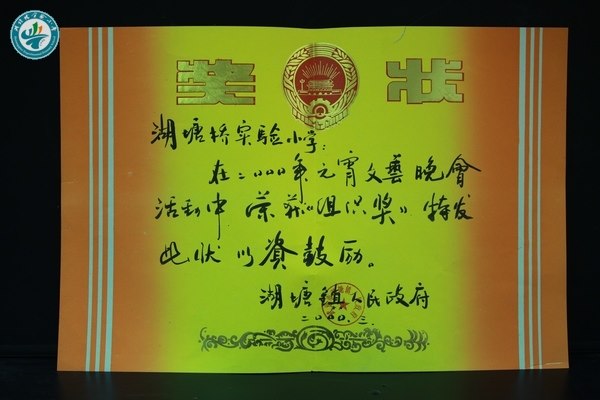 奖状
湖塘桥实验小学:
在二〇〇〇年元宵文藝晚會
活动中荣获《组织奖》特发
此状以资鼓励。
湖塘镇人民政府
二〇〇〇.三